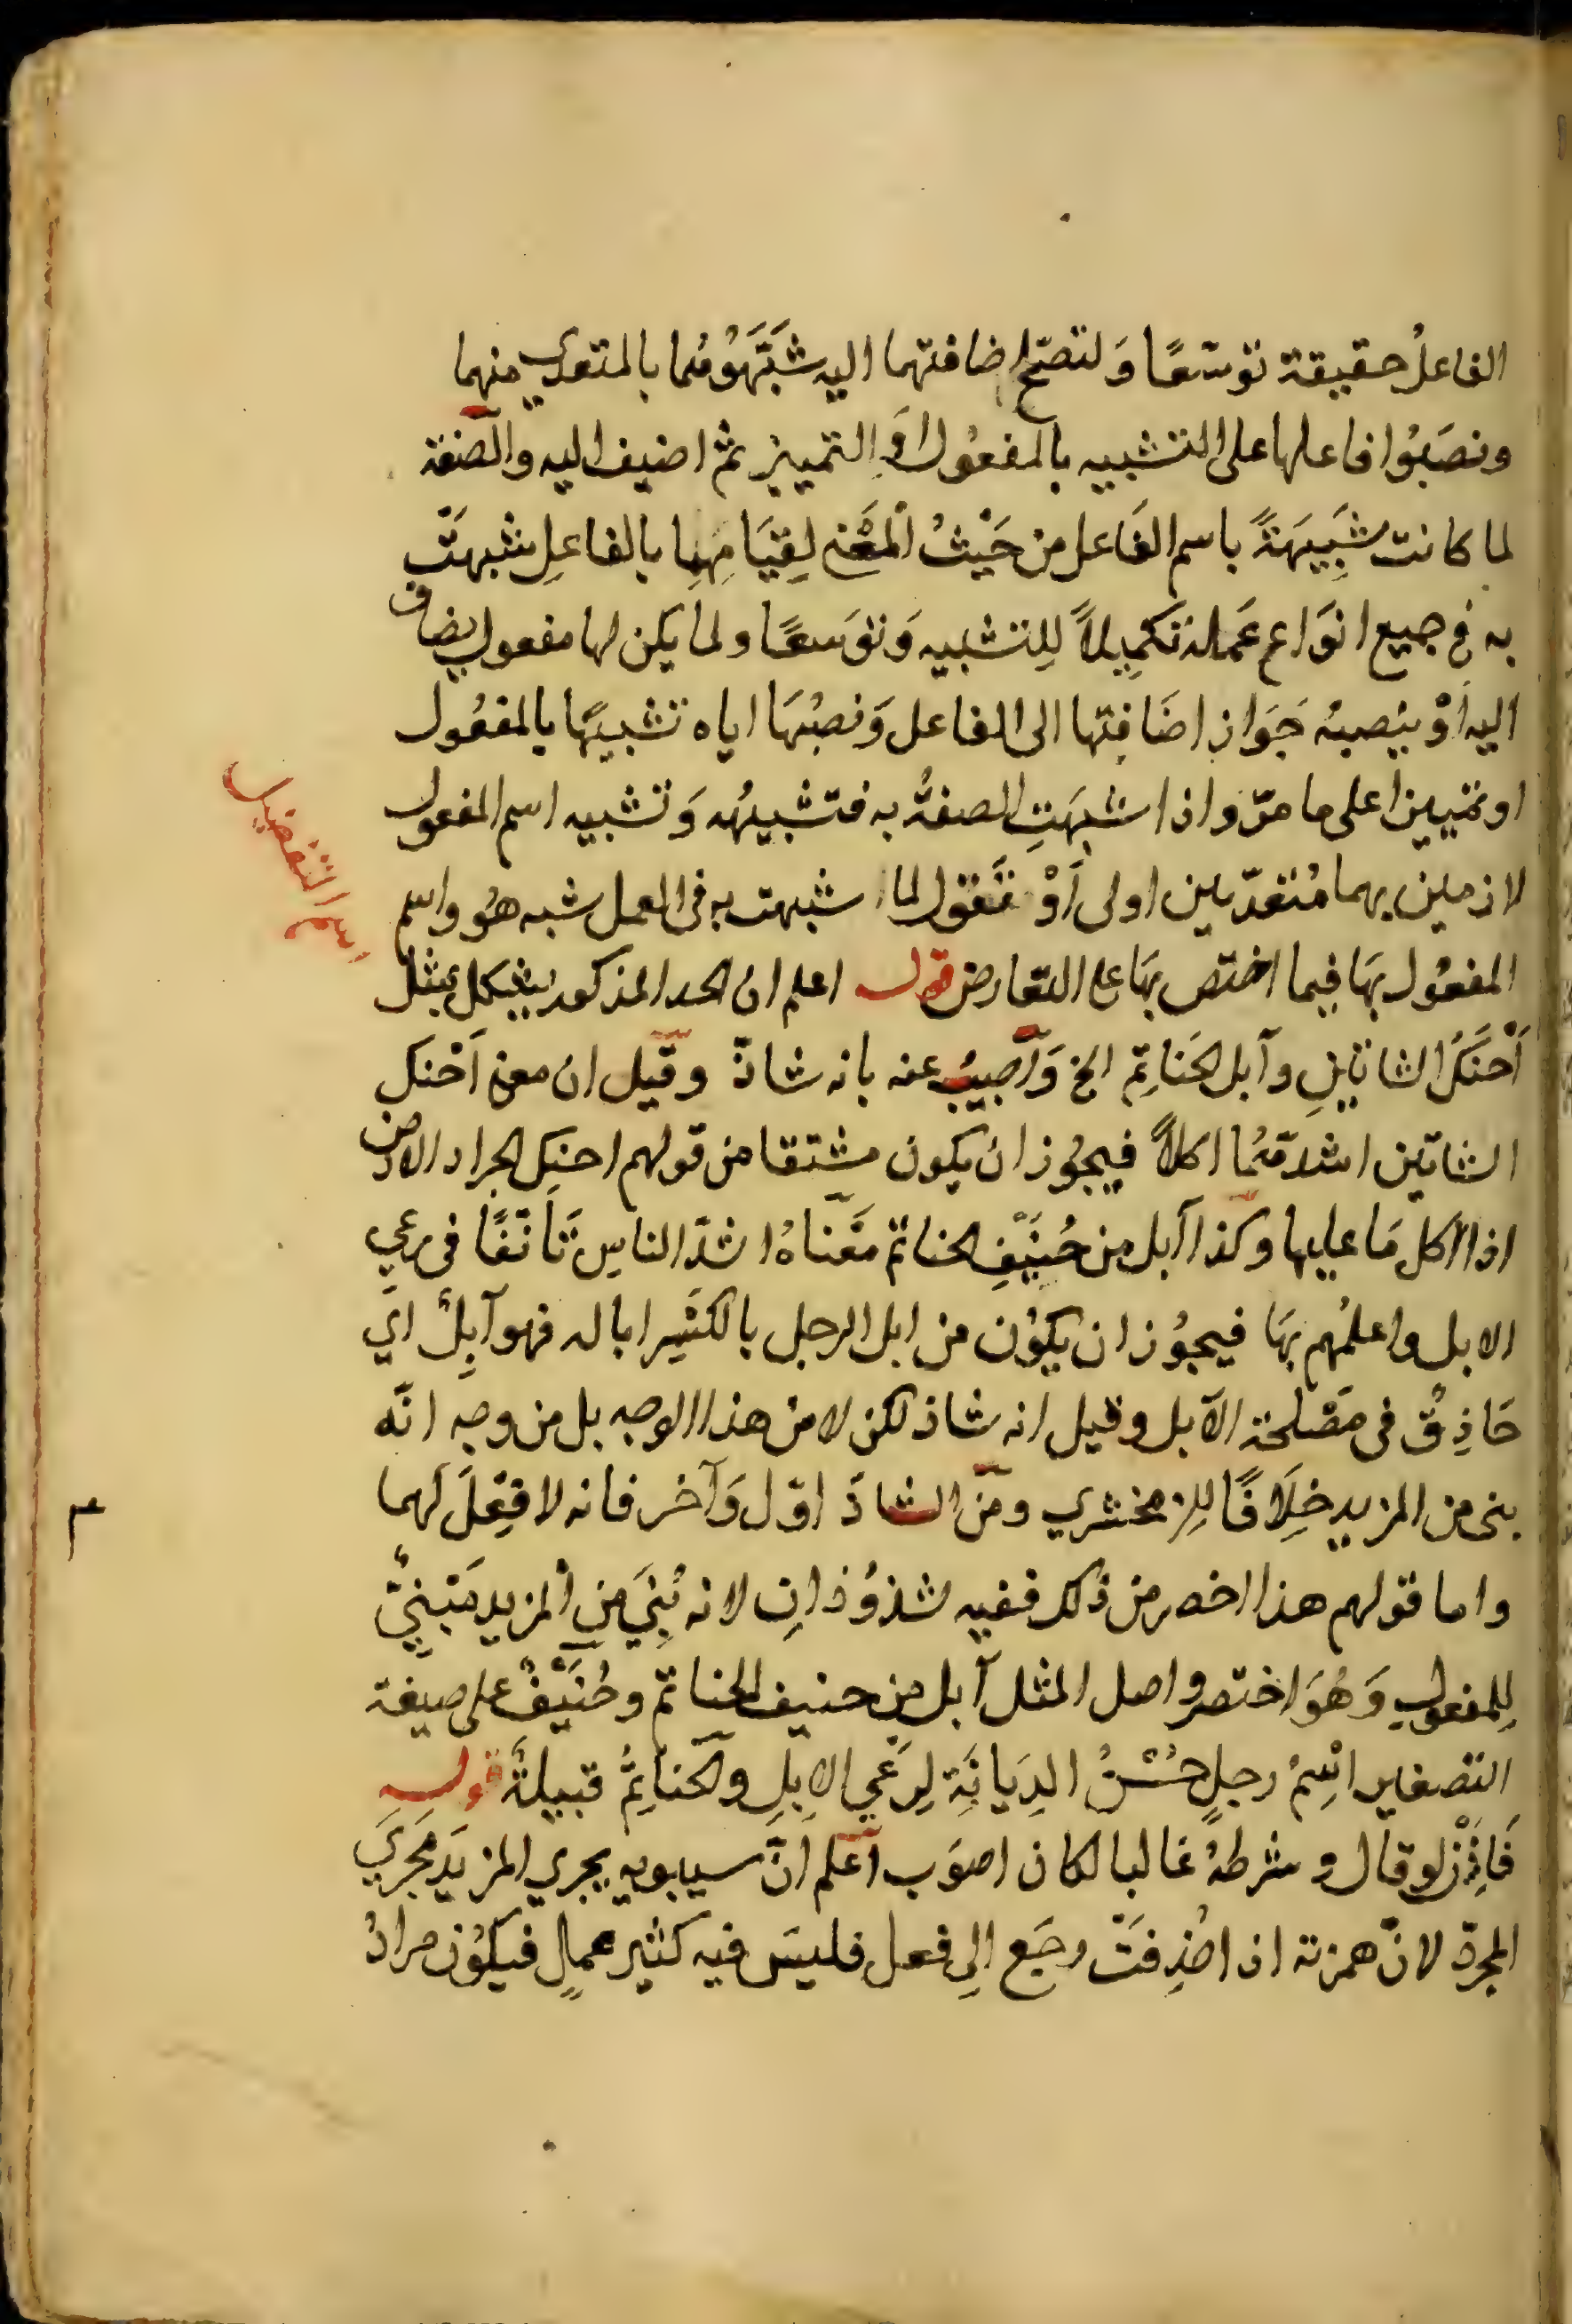 الفاعلُ حقيقة توسّعًا وَلتصحّ اضافتهما اليه شَبَّهَوُهُما بالمتعدي منهما
ونصَبُوا فاعلها على التشبيه بالمفعُول اَو التمييز ثم اضيف اليه والصّفة
لما كانت شَبِيهَةً باسم الفَاعل من حَيْثُ اْلمَعْنى لِقيَامِهِا بالفاعلِ شبهَتْ
به فى جميع انوَاع عَمَله تَكْمِيلاً لِلتشبيه وَتوَسعًا ولما يكن لها مفعول يضاف
اليه اَوْ ينصبهُ جَوَاز اضَافتها الى الفاعل وَنصْبُهَا اياه تشبيهًا بالمفعُول
او تمييزا على ما مرّ واذا شبهَتِ الصفةُ به فتشبيهُه وَتشبيه اسم المفعول
لازمين بهما مُتعدّيين اولى اَوْ نَقول لما شبهت به فى العمل شبه هُو واسم
المفعُول بهَا فيما اختص بهَا على التعارض قوله اعلم ان الحد المذكور يشكل بمثل
اَحْنَكَ الشاتَيْنِ وآبل الحَناتِم الخ وَاُجيبُ عنه بانه شاذّ وقيل ان معنى اَحْنك
الشاتين اشدّهُما اكلاً فيجُوز ان يكون مشتقا من قولهم احنك الجراد الارض
اذا اكل مَا عليها وكذا آبل من حُنَيْفِ الحناتم مَعْناهُ اشدّ الناسِ تَاَنّقًا فى رعي
الابل واعلمُهم بهَا فيجُوز ان يكوُن من ابل الرجل بالكسْر ابالة فهو آبِلٌ اي
حَاذِقٌ فى مصْلحة الابل وقيل انه شاذ لكن لا من هذا الوجه بل من وجه انّه
بنى من المزيد خِلَافًا لِلزمخشري ومن الشاذّ اوّل وَآخر فانه لا فِعْلَ لهما
واما قولهم هذا اخصر من ذلك ففيه شذوُذانِ لانه بُنِيَ مِن اْلمزيد مَبنيٌّ
لِلمفعولِ وَهُوَ اختصر واصل المثل آبل مِن حنيف الحناتم وحُنَيْفٌ على صيغة
التصغير اِسْمُ رجلٍ حسْنُ الدِيَانَةِ لِرَعْي الاِبِلِ والحَناتِمُ قبيلَةٌ قوله
فَاِنْ لو قال وشرطهُ غالبا لكان اصوَب اعلم انّ سيبويه يجري المزيدَ مجرَي
المجرّد لانّ همزته اذا حُذِفَتْ رجَع اِلى فعل فليسَ فيه كثير عملٍ فيكوُن مرادُ
اسم التفضيل